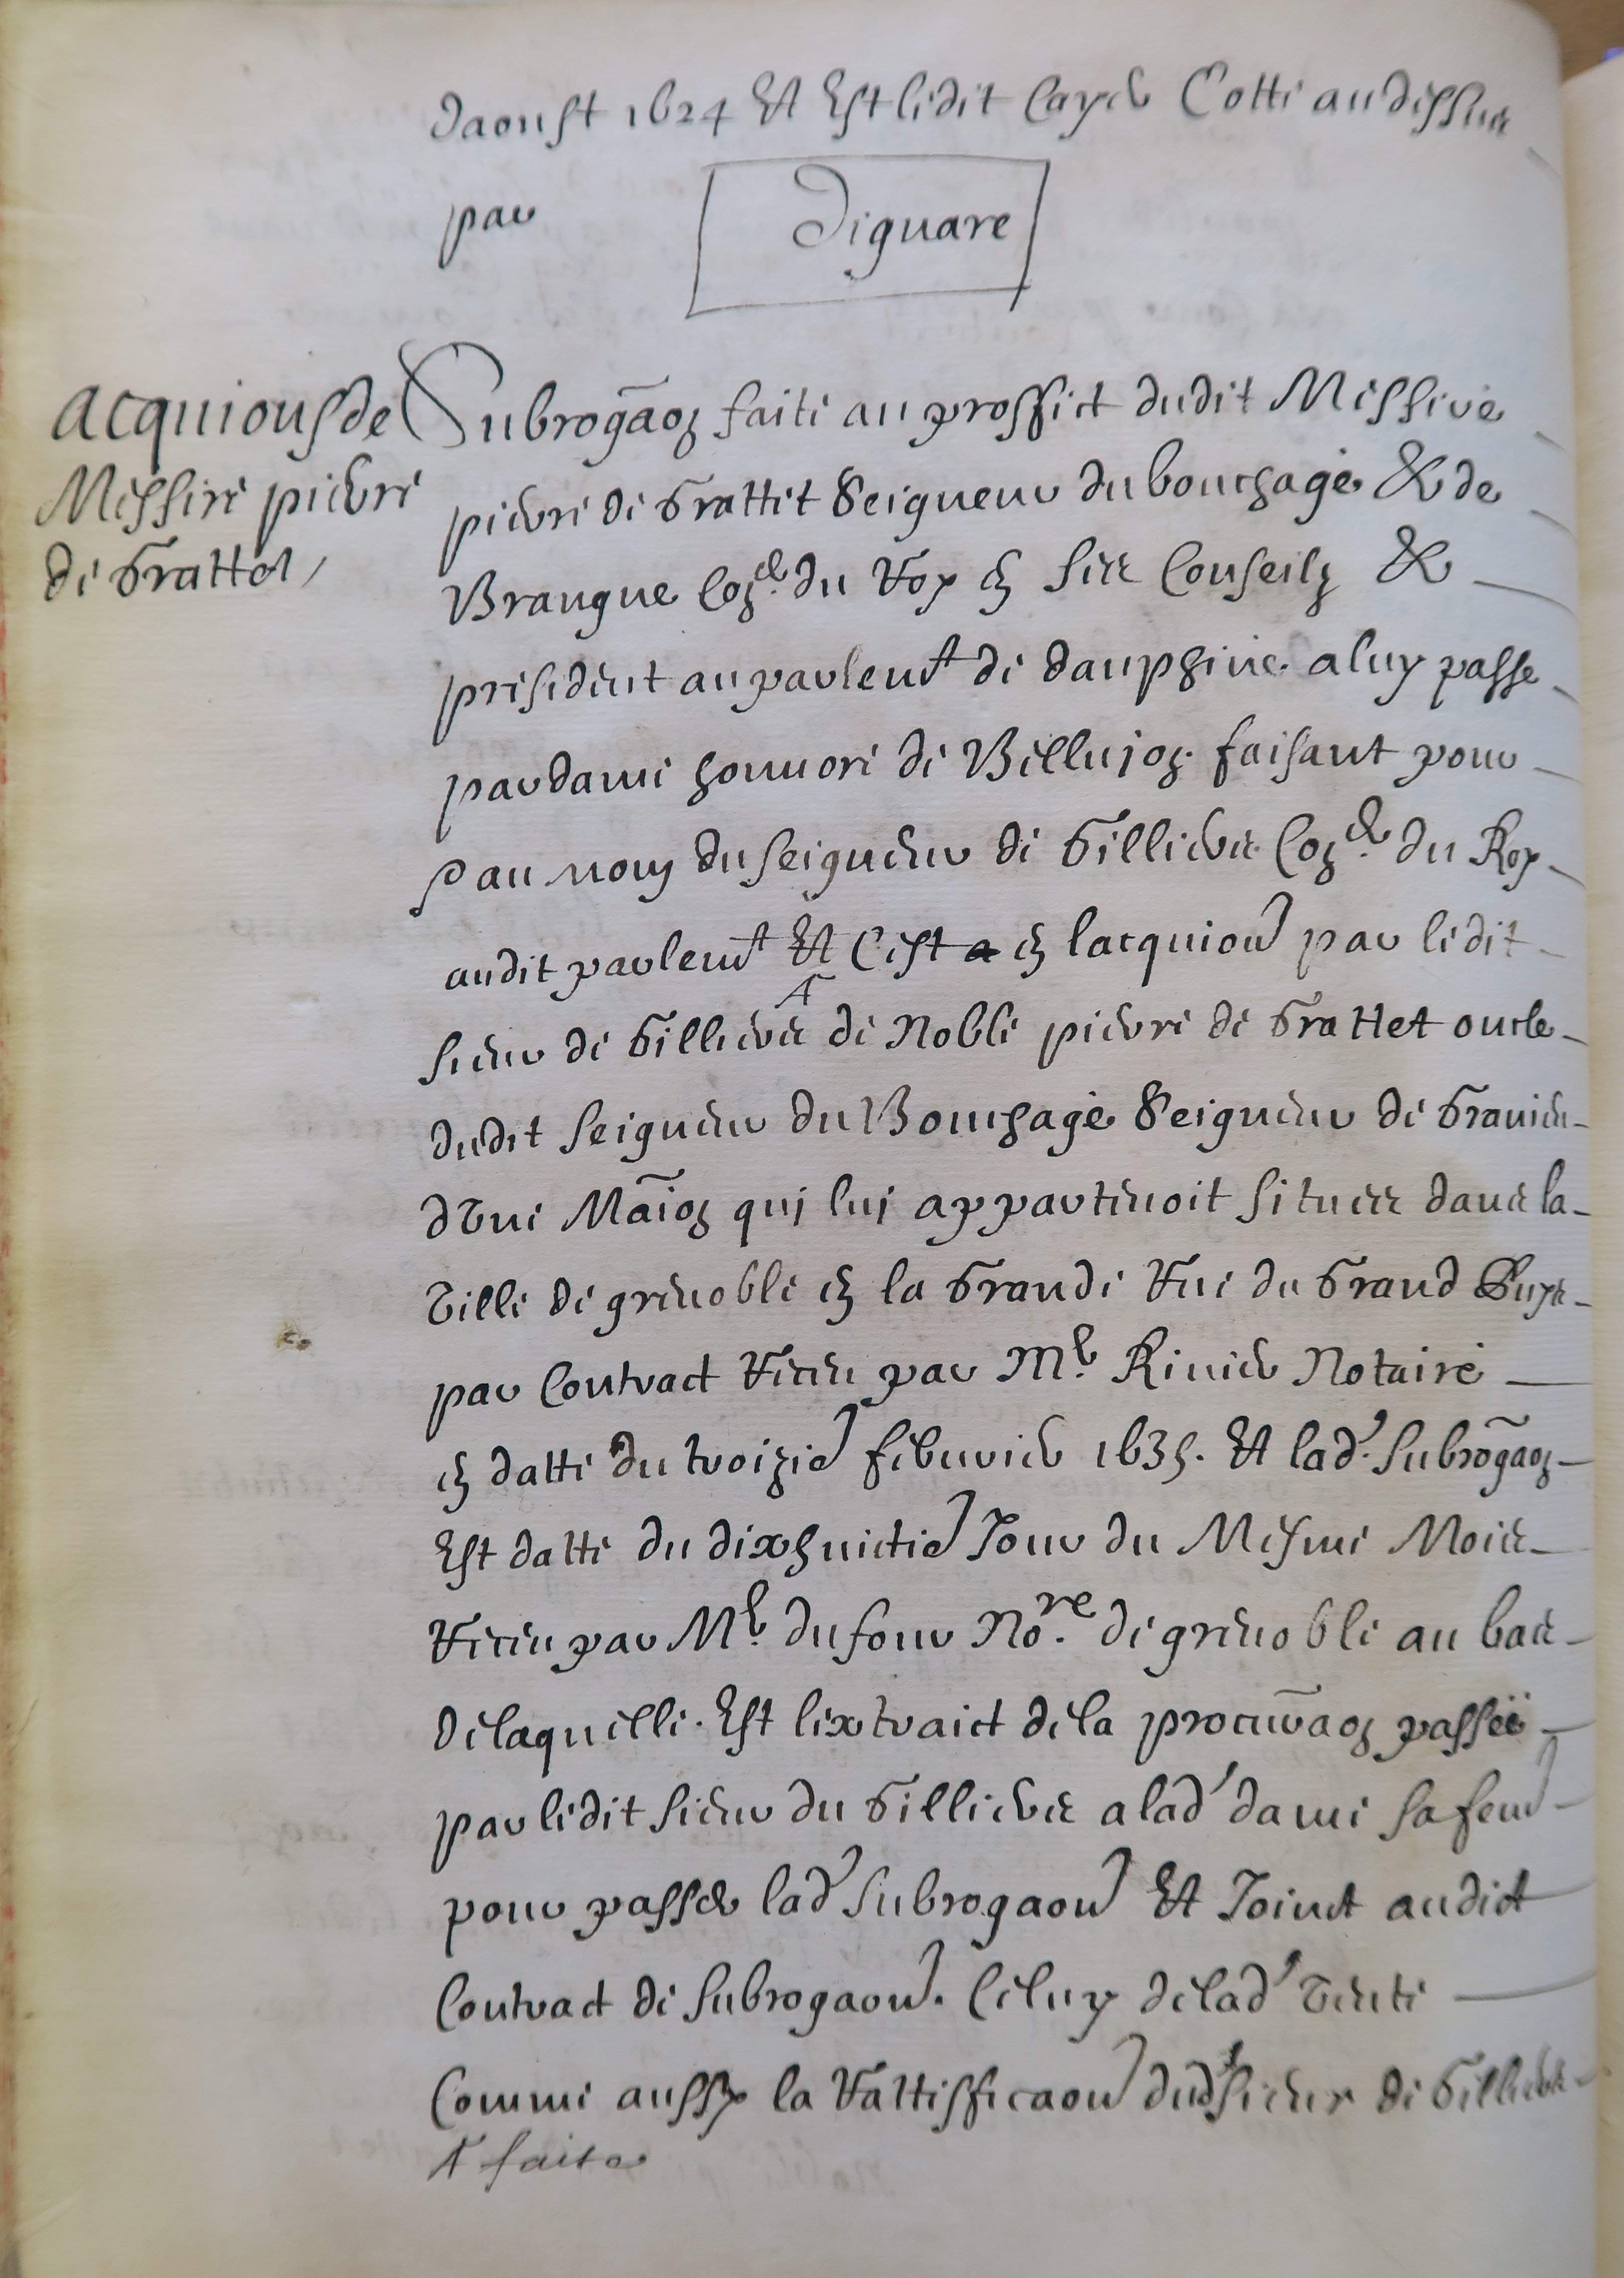 daoust 1624 Et Est ledit Cayer Cotté audessus
par
Diguare
acquions de
Messire pierre
de Grattet /
Subrogãon faite au proffict dudit Messire
pierre de Grattet Seigneur du bouchage & de
Brangue Coner. du Roy en ses Conseilz &
president au parlemt de dauphiné. a luy passe
par dame honnore de Bellujon. faisant pour
& au nom du seigneur de Gillieres Coner. du Roy
audit parlemt Et C'est a en lacquion par ledit
sieur de Gillieres de Noble pierre de Grattet oncle
dudit seigneur du Bouchage Seigneur de Granieu
dune Maĩon qui lui appartenoit situées dans la
ville de grenoble en la Grande Rue du Grand Puys
par Contract Receu par Mr. Rivier Notaire
en datte du troizie febvrier 1635. Et lad. subrogãon
Est datte du dixhuictie Jour du Mesme Mois
Receu par Mr. dufour Nore. de grenoble au bas
de laquelle. Est lextraict de la procurãon passée
par ledit sieur du Gillieres a lad dame sa fem
pour passer lad subrogaon Et Joinct audict
Contract de subrogaon. Celuy de lad vente
Comme aussy la Rattifficaon dud sieur de Gillieres
faite